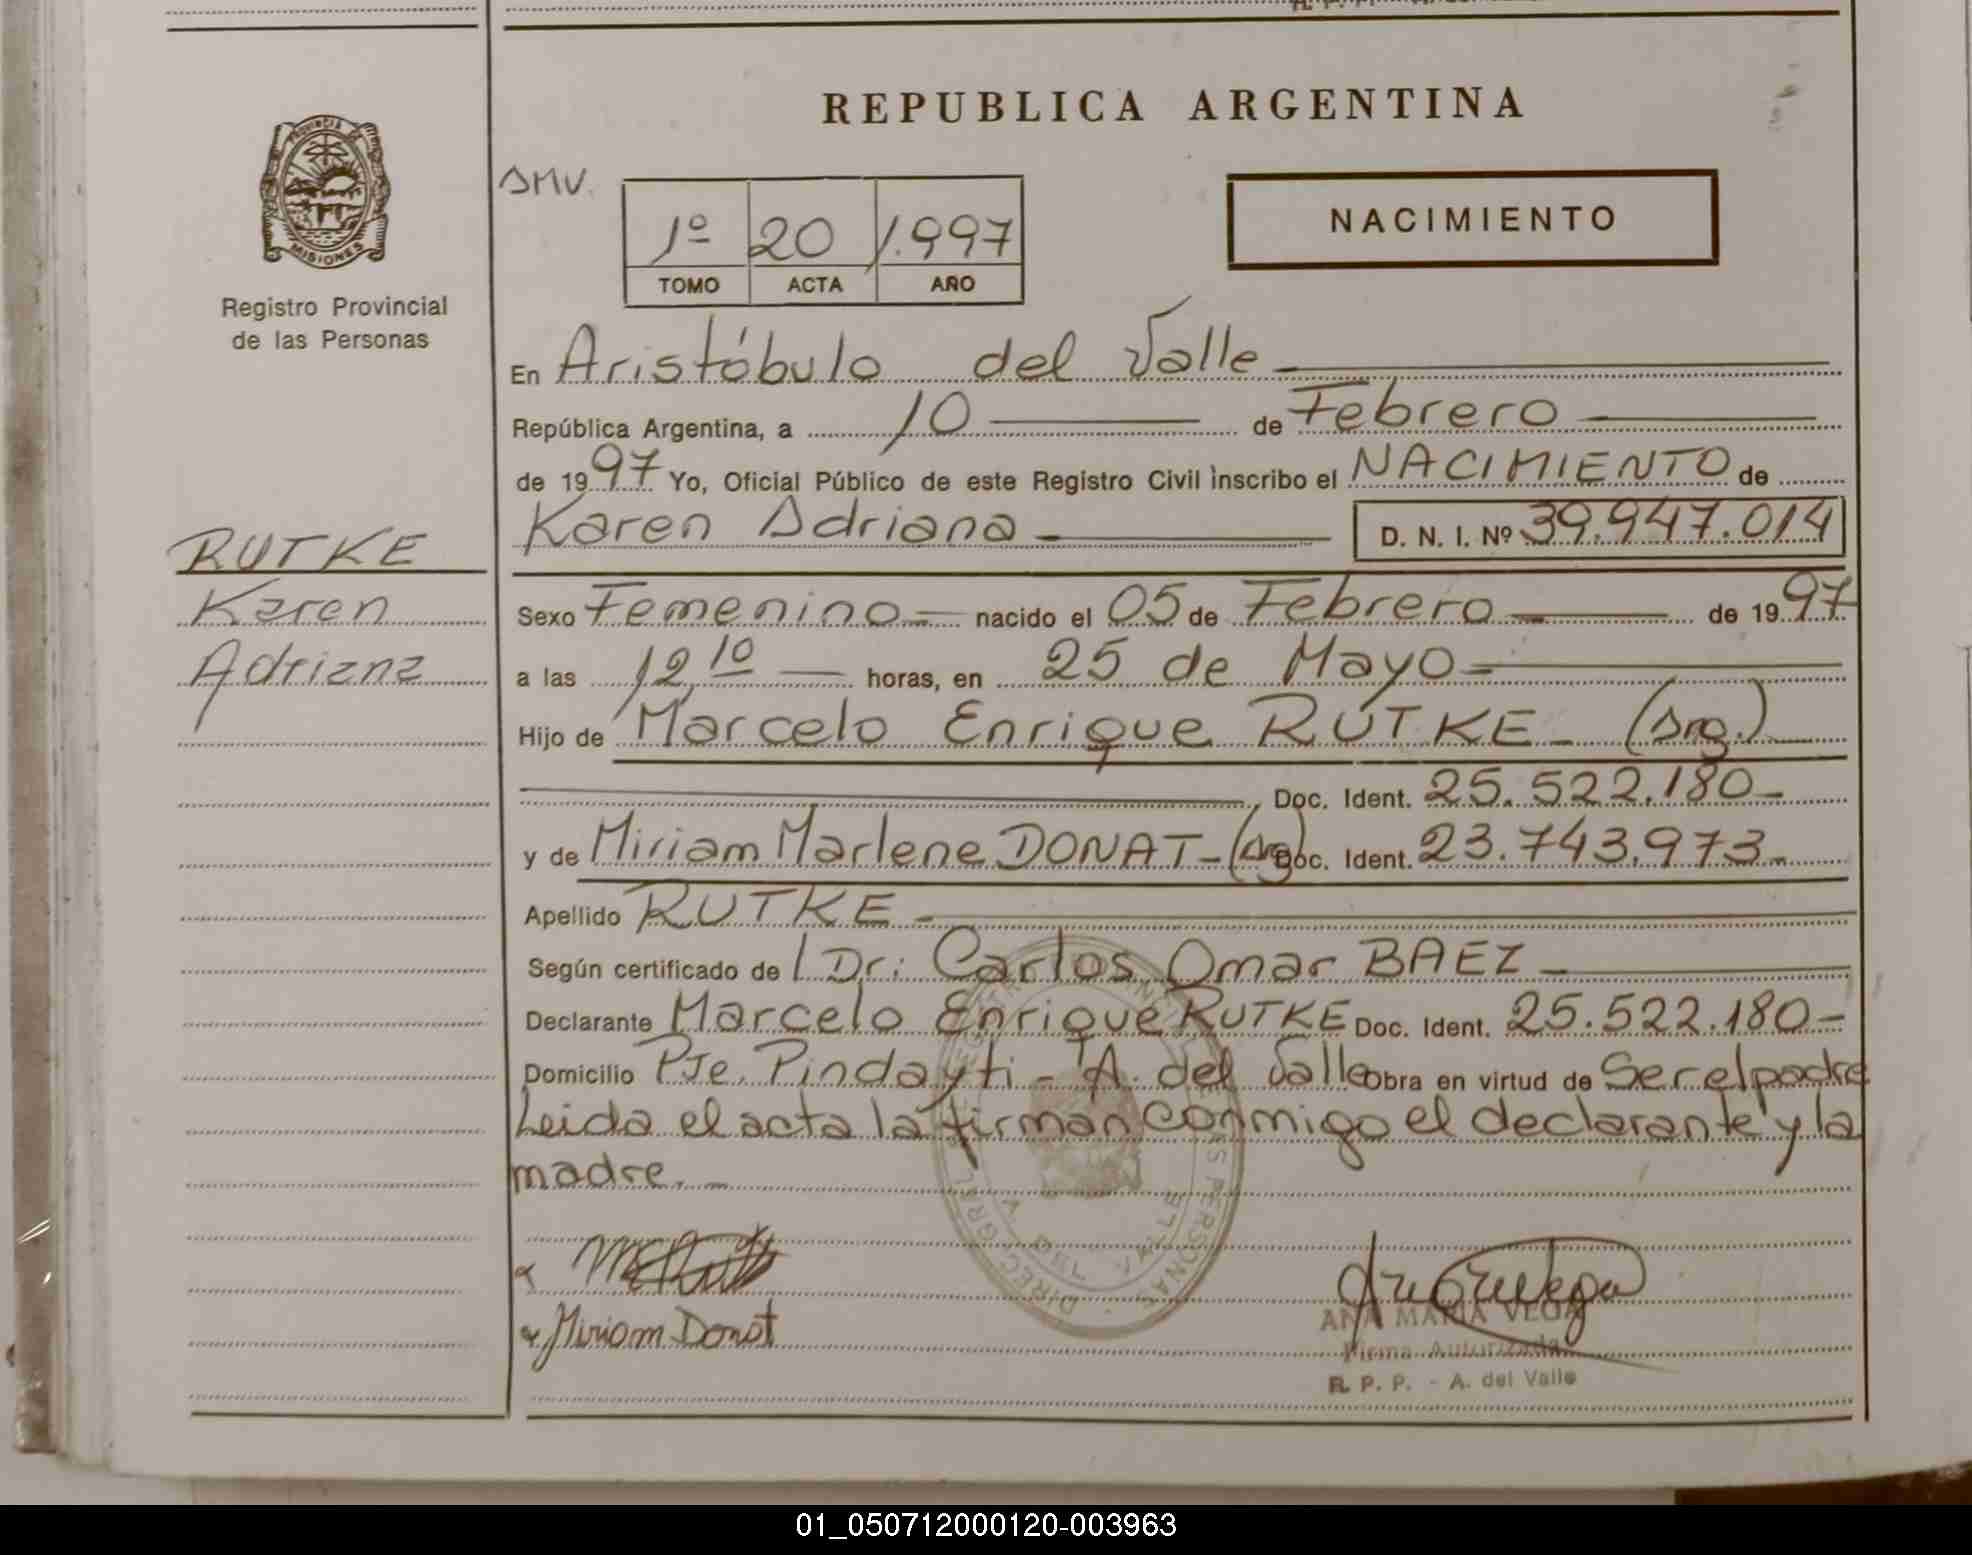 REPUBLICA ARGENTINA
PROVINCIA DE
MISIONES
Registro Provincial
de las Personas
SMV.
1º 20 1.997
TOMO ACTA AÑO
NACIMIENTO
En Aristóbulo del Valle
República Argentina, a 10 de Febrero
de 1997 Yo, Oficial Público de este Registro Civil inscribo el NACIMIENTO de
Karen Adriana D. N. I. Nº 39.947.014
RUTKE
Karen
Adriana
Sexo Femenino nacido el 05 de Febrero de 1997
a las 12,10 horas, en 25 de Mayo
Hijo de Marcelo Enrique RUTKE - (Arg.)
Doc. Ident. 25.522.180-
y de Miriam Marlene DONAT - (Arg) Doc. Ident. 23.743.973-
Apellido RUTKE -
Según certificado de / Dr: Carlos Omar BAEZ -
Declarante Marcelo Enrique RUTKE Doc. Ident. 25.522.180-
Domicilio Pje. Pindayti - A. del Valle Obra en virtud de Ser el padre
Leida el acta la firman conmigo el declarante y la
madre. -
Miriam Donat
A. DEL VALLE
ANA MARIA VEGA
Firma Autorizada
R. P. P. - A. del Valle
01_050712000120-003963